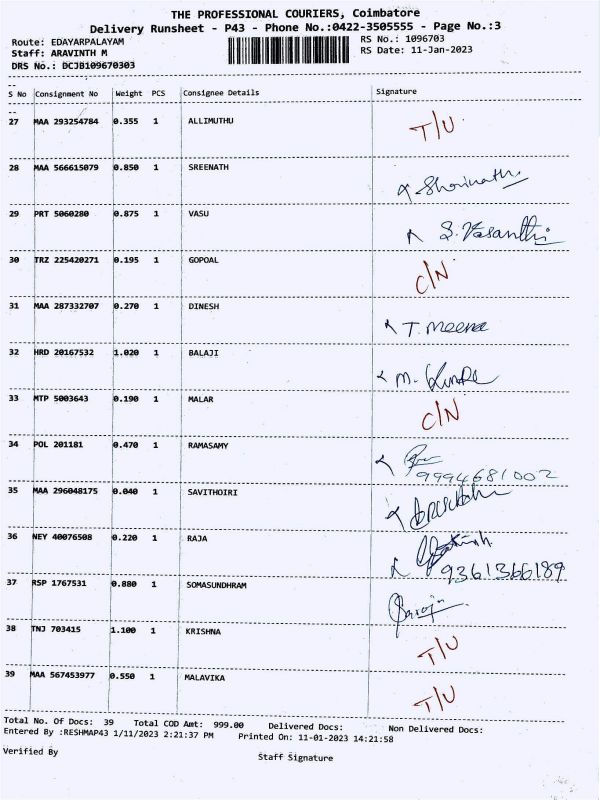 THE PROFESSIONAL COURIERS, Coimbatore
Delivery Runsheet - P43 - Phone No.:0422-3505555 - Page No.:3
Route: EDAYARPALAYAM RS No.: 1096703
Staff: ARAVINTH M RS Date: 11-Jan-2023
DRS No.: DCJB109670303
S No Consignment No Weight PCS Consignee Details Signature
27 MAA 293254784 0.355 1 ALLIMUTHU T/U
28 MAA 566615079 0.850 1 SREENATH
29 PRT 5060280 0.875 1 VASU S. Vasanthi
30 TRZ 225420271 0.195 1 GOPOAL C/N
31 MAA 287332707 0.270 1 DINESH T. Meena
32 HRD 20167532 1.020 1 BALAJI M.
33 MTP 5003643 0.190 1 MALAR C/N
34 POL 201181 0.470 1 RAMASAMY 9994681002
35 MAA 296048175 0.040 1 SAVITHOIRI
36 NEY 40076508 0.220 1 RAJA 9361366189
37 RSP 1767531 0.880 1 SOMASUNDHRAM
38 TNJ 703415 1.100 1 KRISHNA T/U
39 MAA 567453977 0.550 1 MALAVIKA T/U
Total No. Of Docs: 39 Total COD Amt: 999.00 Delivered Docs: Non Delivered Docs:
Entered By :RESHMAP43 1/11/2023 2:21:37 PM Printed On: 11-01-2023 14:21:58
Verified By Staff Signature